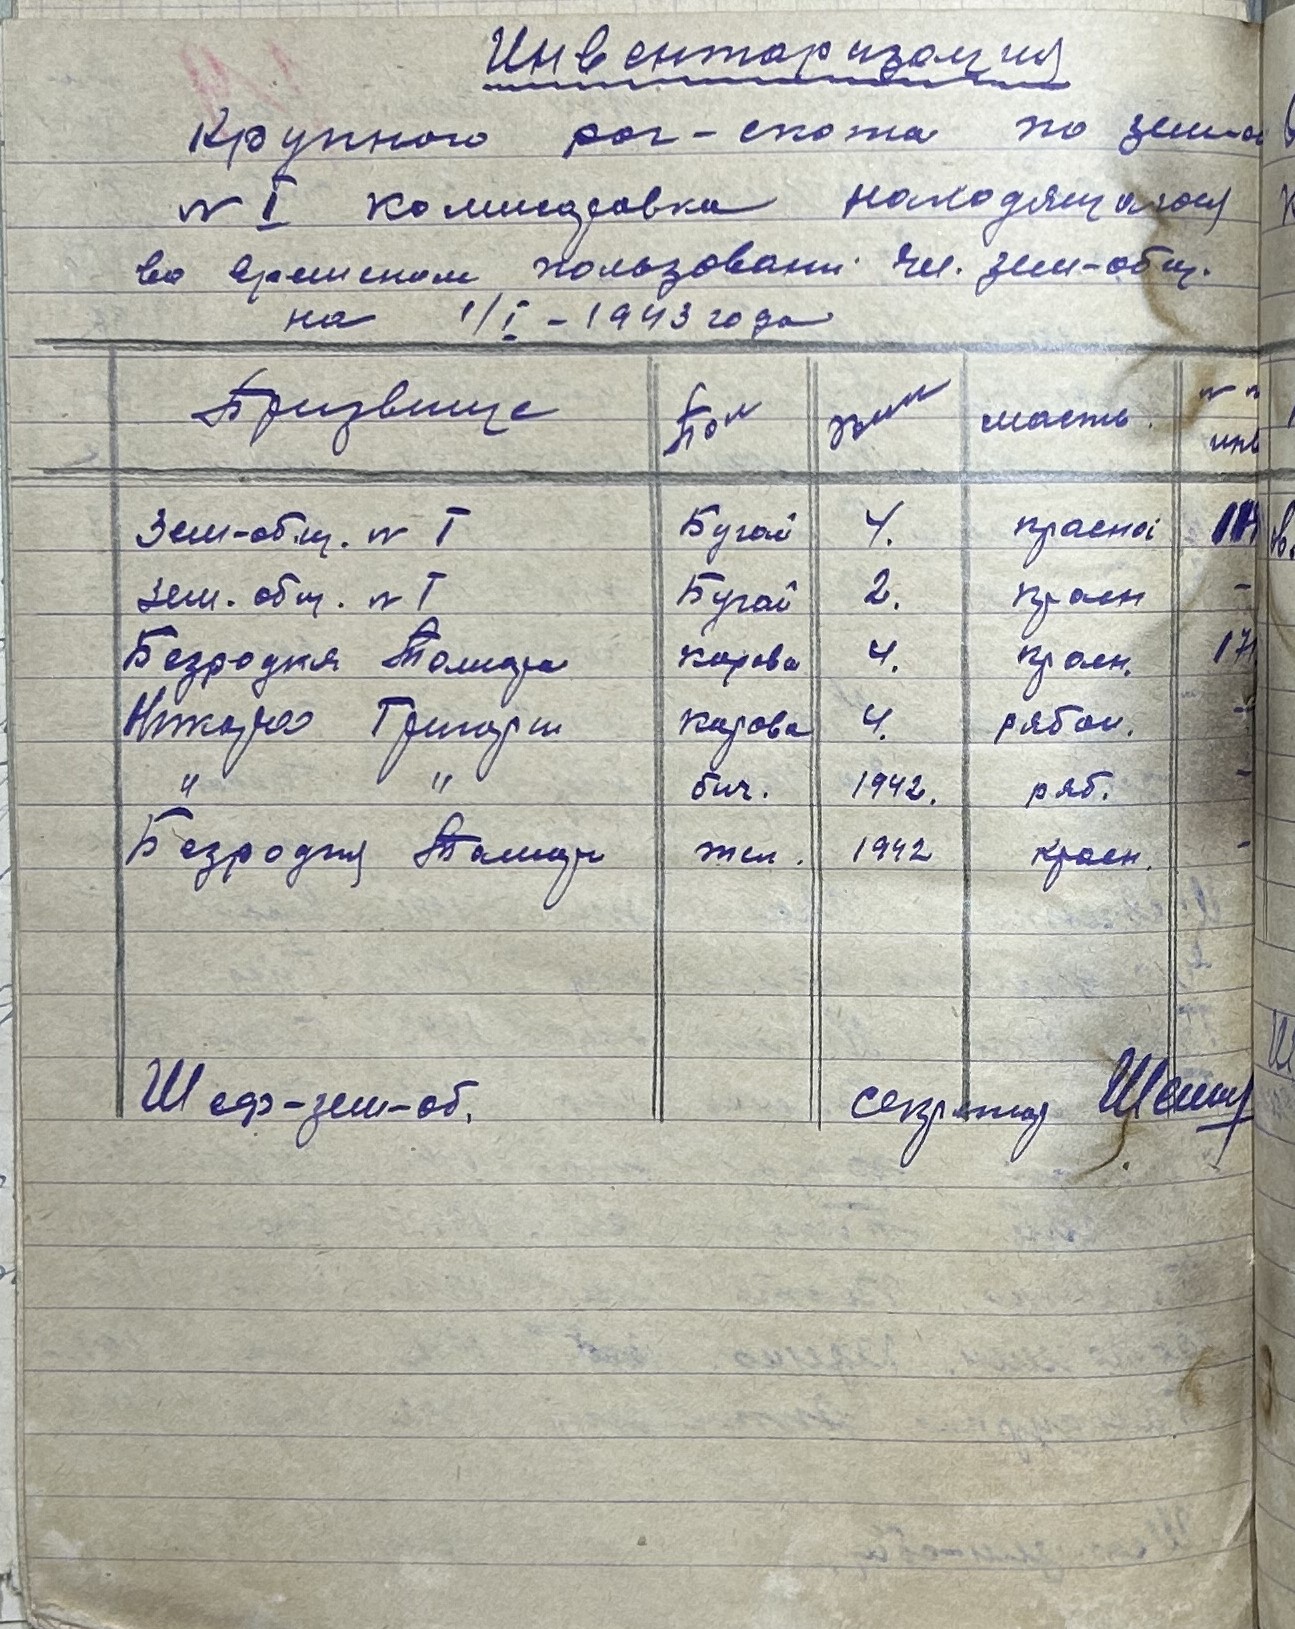 Инвентаризация
Крупного рог-скота по зем-о
№ I комисаровка находящагося
во временом пользовани чл. зем-общ.
на 1/I - 1943 года
Призвище Пол масть. № №
инв
Зем-общ. № I Бугай 4. красной
Зем. общ. № I Бугай 2. красн -
Безродня Тамара карова 4. красн. 17
Григори карова 4. рябой. -
" " бич. 1942. ряб. -
Безродня Тамара тел. 1942 красн. -
Шеф-зем-об. секретар